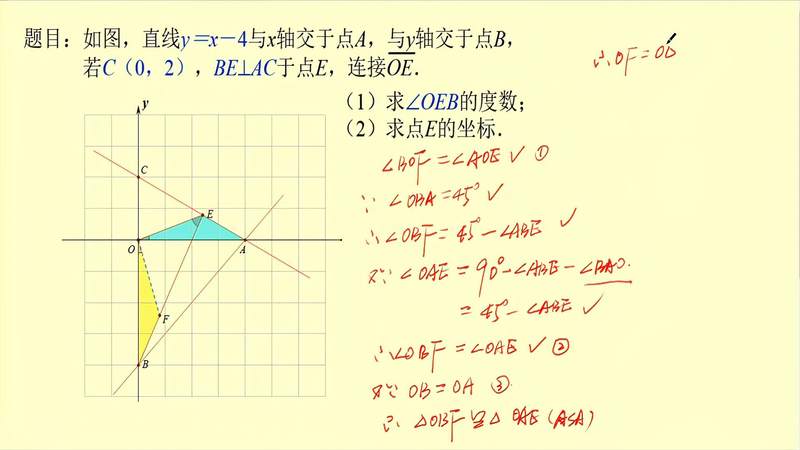 题目：如图，直线y＝x－4与x轴交于点A，与y轴交于点B，
若C（0，2），BE⊥AC于点E，连接OE．
（1）求∠OEB的度数；
（2）求点E的坐标．
∴OF=OB
∠BOF=∠AOE ✓ ①
∵ ∠OBA=45° ✓
∴∠OBF=45°-∠ABE ✓
又∵∠OAE=90°-∠ABE-∠BAO.
=45°-∠ABE ✓
∴∠OBF=∠OAE ✓ ②
又∵ OB=OA ③
∴ △OBF≌△OAE(ASA)
y
C
E
O
A
F
B